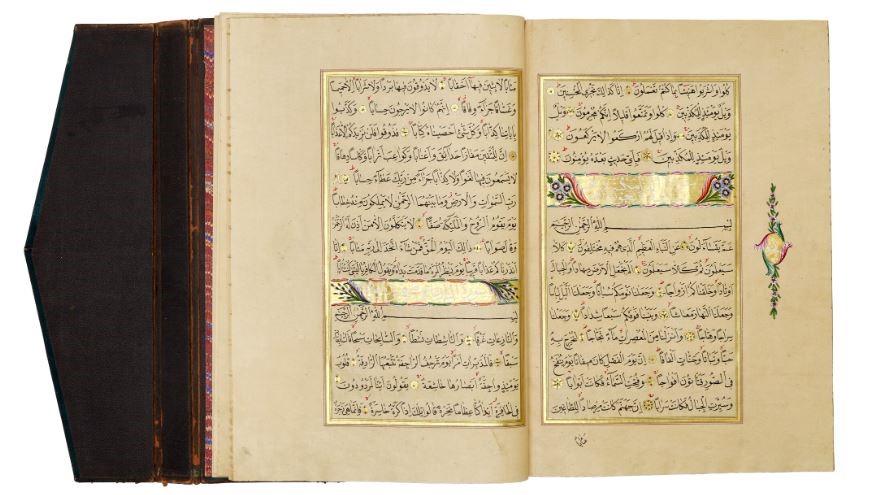 كلوا واشربوا هنيئا بما كنتم تعملون إنا كذلك نجزي المحسنين
ويل يومئذ للمكذبين كلوا وتمتعوا قليلا إنكم مجرمون ويل
يومئذ للمكذبين وإذا قيل لهم اركعوا لا يركعون
ويل يومئذ للمكذبين فبأي حديث بعده يؤمنون
بسم الله الرحمن الرحيم
عم يتساءلون عن النبإ العظيم الذي هم فيه مختلفون كلا
سيعلمون ثم كلا سيعلمون ألم نجعل الأرض مهادا والجبال
أوتادا وخلقناكم أزواجا وجعلنا نومكم سباتا وجعلنا الليل لباسا
وجعلنا النهار معاشا وبنينا فوقكم سبعا شدادا وجعلنا
سراجا وهاجا وأنزلنا من المعصرات ماء ثجاجا لنخرج به
حبا ونباتا وجنات ألفافا إن يوم الفصل كان ميقاتا يوم ينفخ
في الصور فتأتون أفواجا وفتحت السماء فكانت أبوابا
وسيرت الجبال فكانت سرابا إن جهنم كانت مرصادا للطاغين
مآبا
مآبا لابثين فيها أحقابا لا يذوقون فيها بردا ولا شرابا إلا حميما
وغساقا جزاء وفاقا إنهم كانوا لا يرجون حسابا وكذبوا
بآياتنا كذابا وكل شيء أحصيناه كتابا فذوقوا فلن نزيدكم إلا عذابا
إن للمتقين مفازا حدائق وأعنابا وكواعب أترابا وكأسا دهاقا
لا يسمعون فيها لغوا ولا كذابا جزاء من ربك عطاء حسابا
رب السموات والأرض وما بينهما الرحمن لا يملكون منه خطابا
يوم يقوم الروح والملئكة صفا لا يتكلمون إلا من أذن له الرحمن
وقال صوابا ذلك اليوم الحق فمن شاء اتخذ إلى ربه مآبا إنا
أنذرناكم عذابا قريبا يوم ينظر المرء ما قدمت يداه ويقول الكافر يا ليتني كنت ترابا
بسم الله الرحمن الرحيم
والنازعات غرقا والناشطات نشطا والسابحات سبحا فالسابقات
سبقا فالمدبرات أمرا يوم ترجف الراجفة تتبعها الرادفة قلوب
يومئذ واجفة أبصارها خاشعة يقولون أئنا لمردودون
في الحافرة أئذا كنا عظاما نخرة قالوا تلك إذا كرة خاسرة فإنما هي زجرة